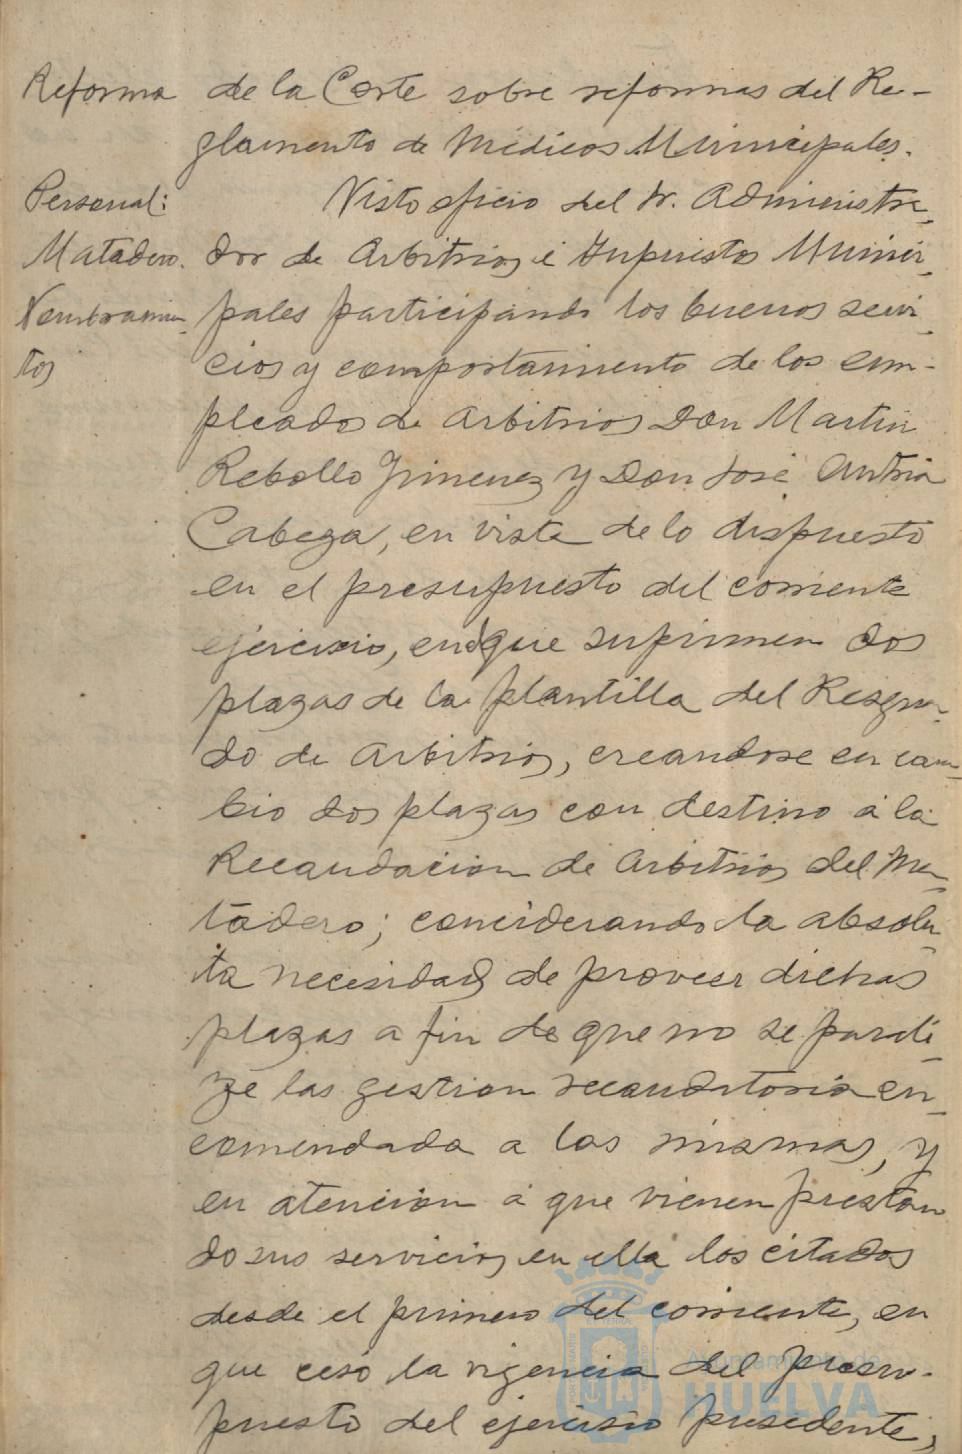 Reforma de la Corte sobre reformas del Re-
glamento de Médicos Municipales.
Personal: Visto oficio del Sr. Administra-
Matadero. dor de Arbitrios é Inpuestos Munici-
Nombramien- pales participando los buenos servi-
tos cios y comportamiento de los em-
pleados de Arbitrios Don Martin
Rebollo Jimenez y Don José Antria
Cabeza, en vista de lo dispuesto
en el presupuesto del corriente
ejercicio, en que suprimen dos
plazas de la plantilla del Resguar-
do de Arbitrios, creandose en cam-
bio dos plazas con destino á la
Recaudacion de Arbitrios del Ma-
tadero; conciderando la absolu-
ta necesidad de proveer dichas
plazas a fin de que no se parali-
ze las gestion recaudatoria en-
comendada a las mismas, y
en atencion á que vienen prestan
do sus servicios en ella los citados
desde el primero del corriente, en
que cesó la vigencia del presu-
puesto del ejercisio presedente,
Ayuntamiento de
HUELVA